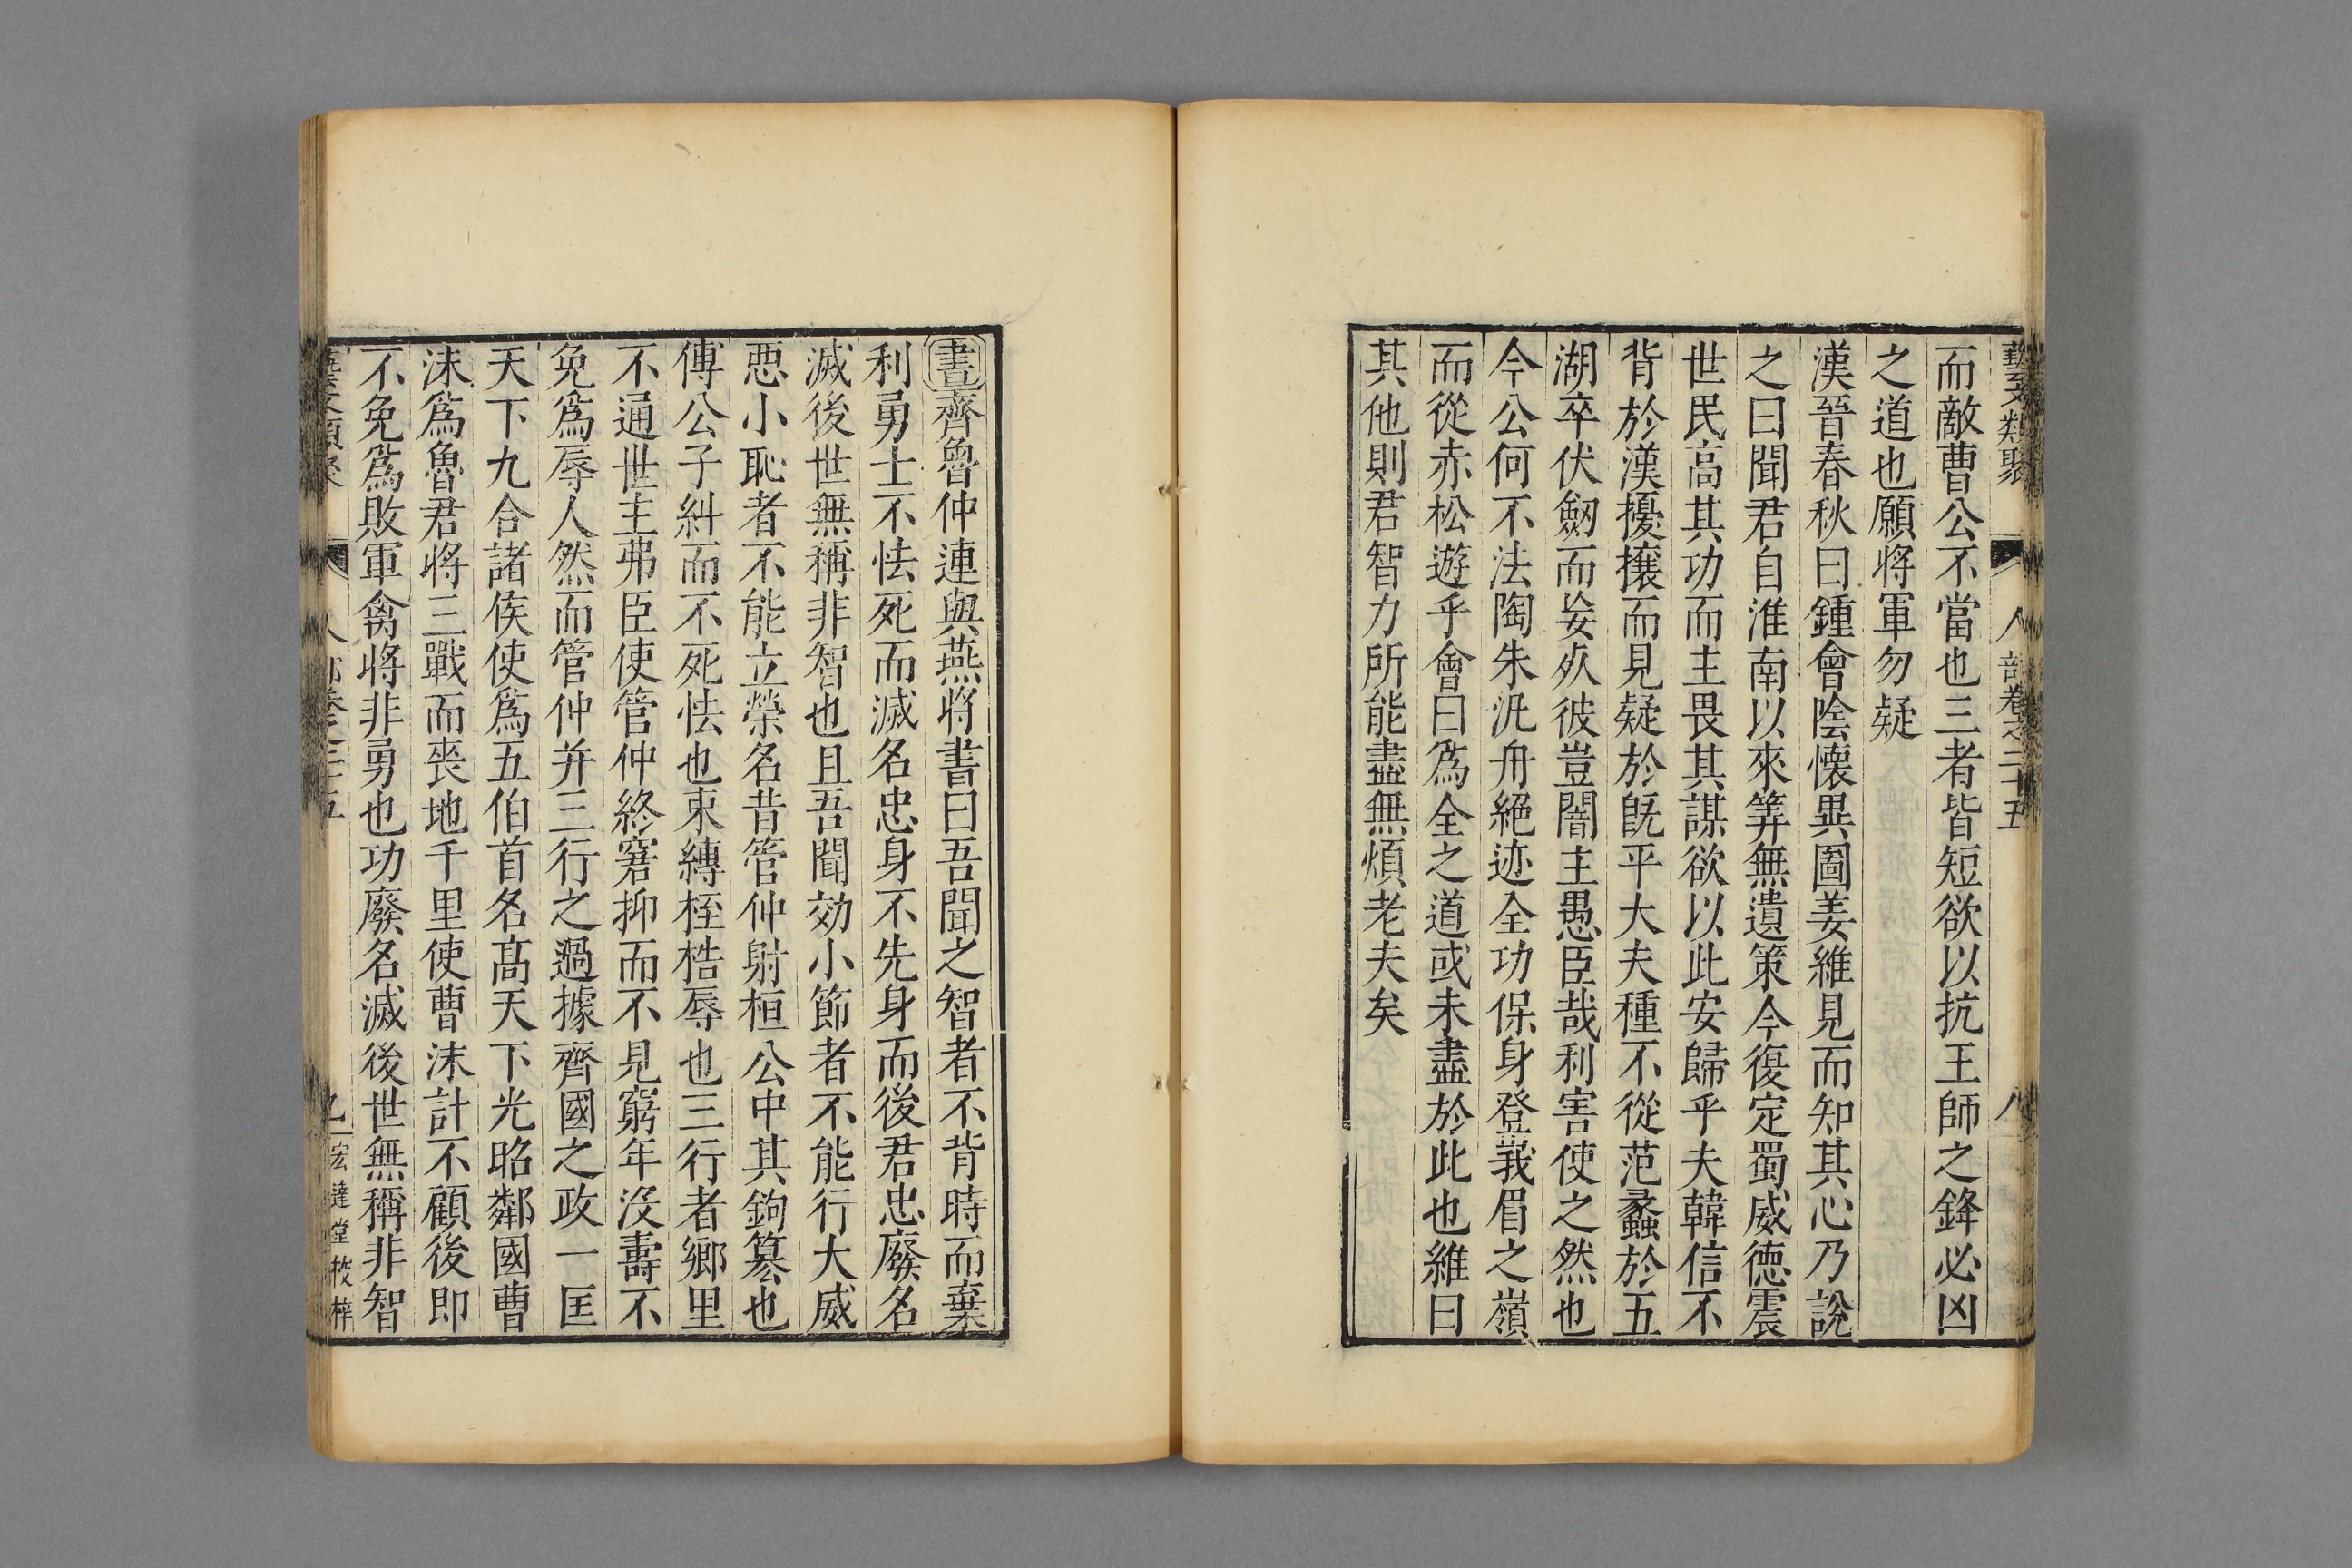 藝文類聚　人部卷之二十五　八
而敵曹公不當也三者皆短欲以抗王師之鋒必凶
之道也願將軍勿疑
漢晉春秋曰鍾會陰懷異圖姜維見而知其心乃說
之曰聞君自淮南以來筭無遺策今復定蜀威德震
世民高其功而主畏其謀欲以此安歸乎夫韓信不
背於漢擾攘而見疑於旣平大夫種不從范蠡於五
湖卒伏劔而妄死彼豈闇主愚臣哉利害使之然也
今公何不法陶朱汎舟絕迹全功保身登峩眉之嶺
而從赤松遊乎會曰爲全之道或未盡於此也維曰
其他則君智力所能盡無煩老夫矣
書齊魯仲連與燕將書曰吾聞之智者不背時而棄
利勇士不怯死而滅名忠身不先身而後君忠廢名
滅後世無稱非智也且吾聞効小節者不能行大威
惡小恥者不能立榮名昔管仲射桓公中其鉤簒也
傅公子糾而不死怯也束縛桎梏辱也三行者鄉里
不通世主弗臣使管仲終窘抑而不見窮年沒壽不
免爲辱人然而管仲并三行之過據齊國之政一匡
天下九合諸侯使爲五伯首名高天下光昭鄰國曹
沫爲魯君將三戰而喪地千里使曹沫計不顧後即
不免爲敗軍禽將非勇也功廢名滅後世無稱非智
藝文類聚　人部卷之二十五　九　宏達堂校梓